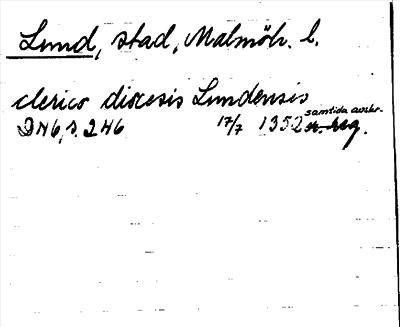 Lund, stad, Malmöh. l.
clerico diocesis Lundensis
samtida avskr.
DN6, s. 246 17/7 1352 reg.